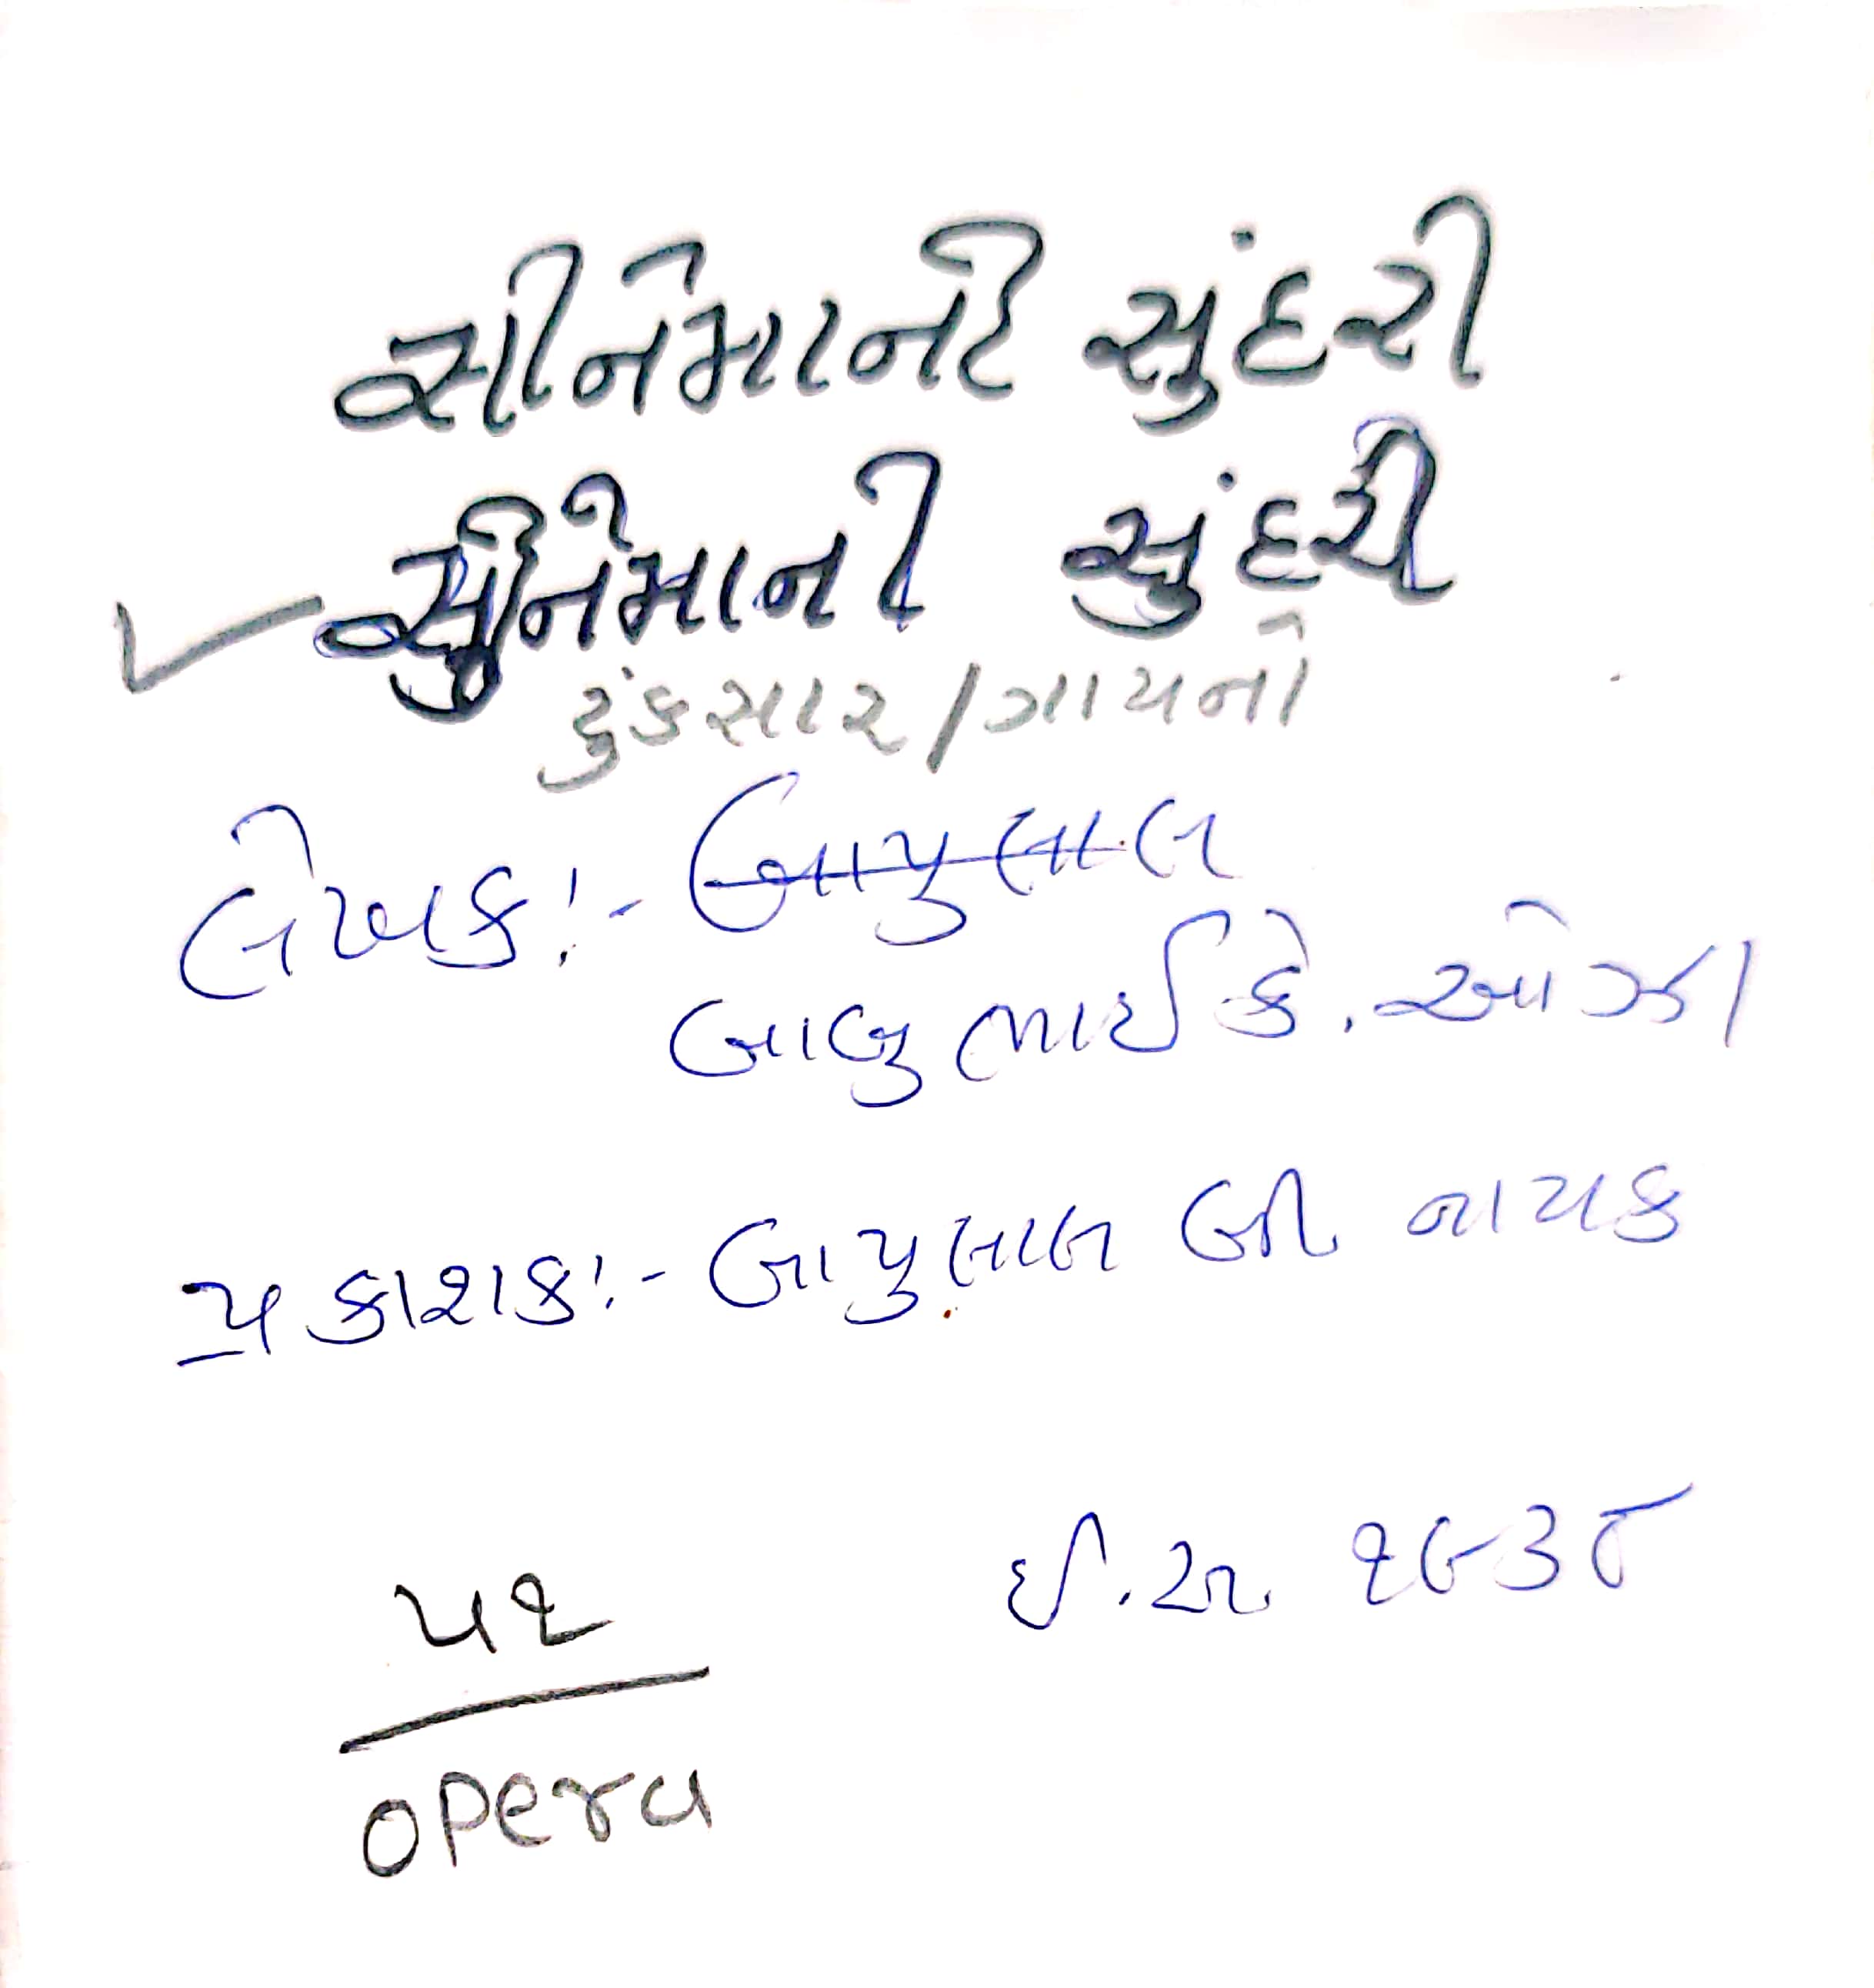 સીનેમાની સુંદરી
સીનેમાની સુંદરી
ટુંકસાર/ગાયનો
લેખક:- બાપુલાલ
બાબુભાઈ કે. ઓઝા
પ્રકાશક:- બાપુલાલ બી નાયક
ઈ.સ. ૧૯૩૮
૫૧
opera